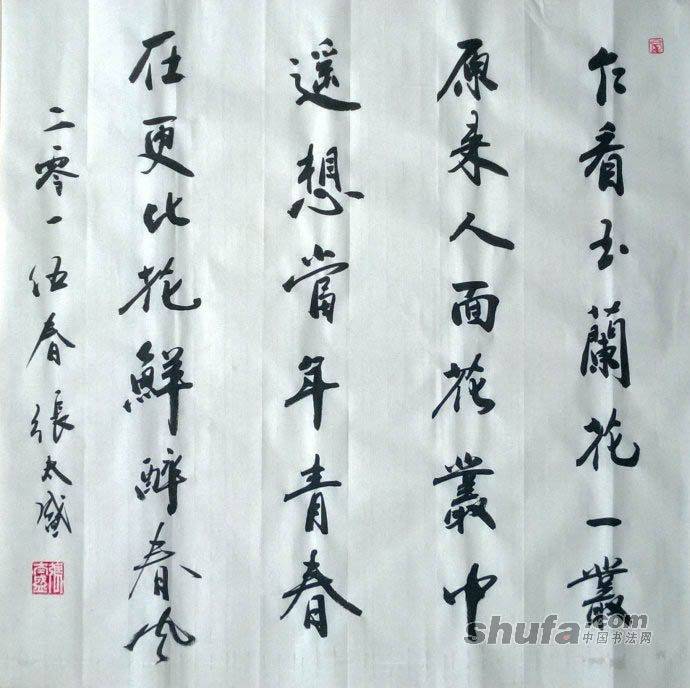 乍看玉蘭花一叢
原来人面花叢中
遥想當年青春
在更比花鮮醉春风
二零一伍春 張太盛
shufa.com
中国书法网